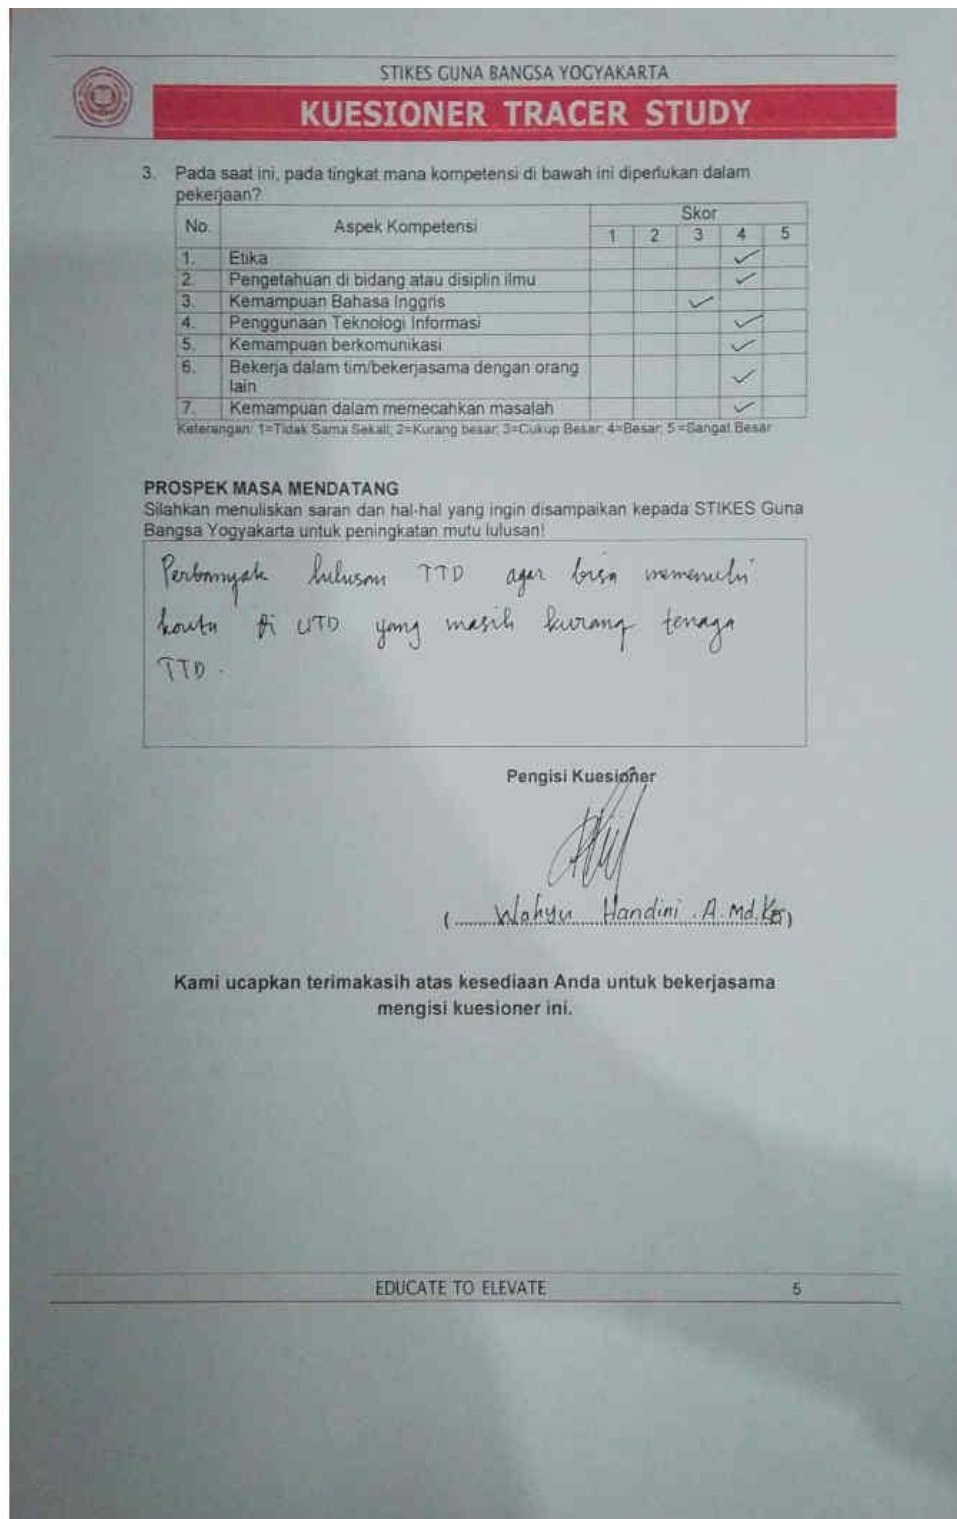 STIKES GUNA BANGSA YOGYAKARTA
KUESIONER TRACER STUDY
3. Pada saat ini, pada tingkat mana kompetensi di bawah ini diperlukan dalam
pekerjaan?
No. Aspek Kompetensi Skor
1 2 3 4 5
1. Etika ✓
2. Pengetahuan di bidang atau disiplin ilmu ✓
3. Kemampuan Bahasa Inggris ✓
4. Penggunaan Teknologi Informasi ✓
5. Kemampuan berkomunikasi ✓
6. Bekerja dalam tim/bekerjasama dengan orang
lain ✓
7. Kemampuan dalam memecahkan masalah ✓
Keterangan: 1=Tidak Sama Sekali; 2=Kurang besar; 3=Cukup Besar; 4=Besar; 5=Sangat Besar
PROSPEK MASA MENDATANG
Silahkan menuliskan saran dan hal-hal yang ingin disampaikan kepada STIKES Guna
Bangsa Yogyakarta untuk peningkatan mutu lulusan!
Perbanyak lulusan TTD agar bisa memenuhi
kouta di UTD yang masih kurang tenaga
TTD.
Pengisi Kuesioner
(Wahyu Handini . A. Md. Kes)
Kami ucapkan terimakasih atas kesediaan Anda untuk bekerjasama
mengisi kuesioner ini.
EDUCATE TO ELEVATE 5